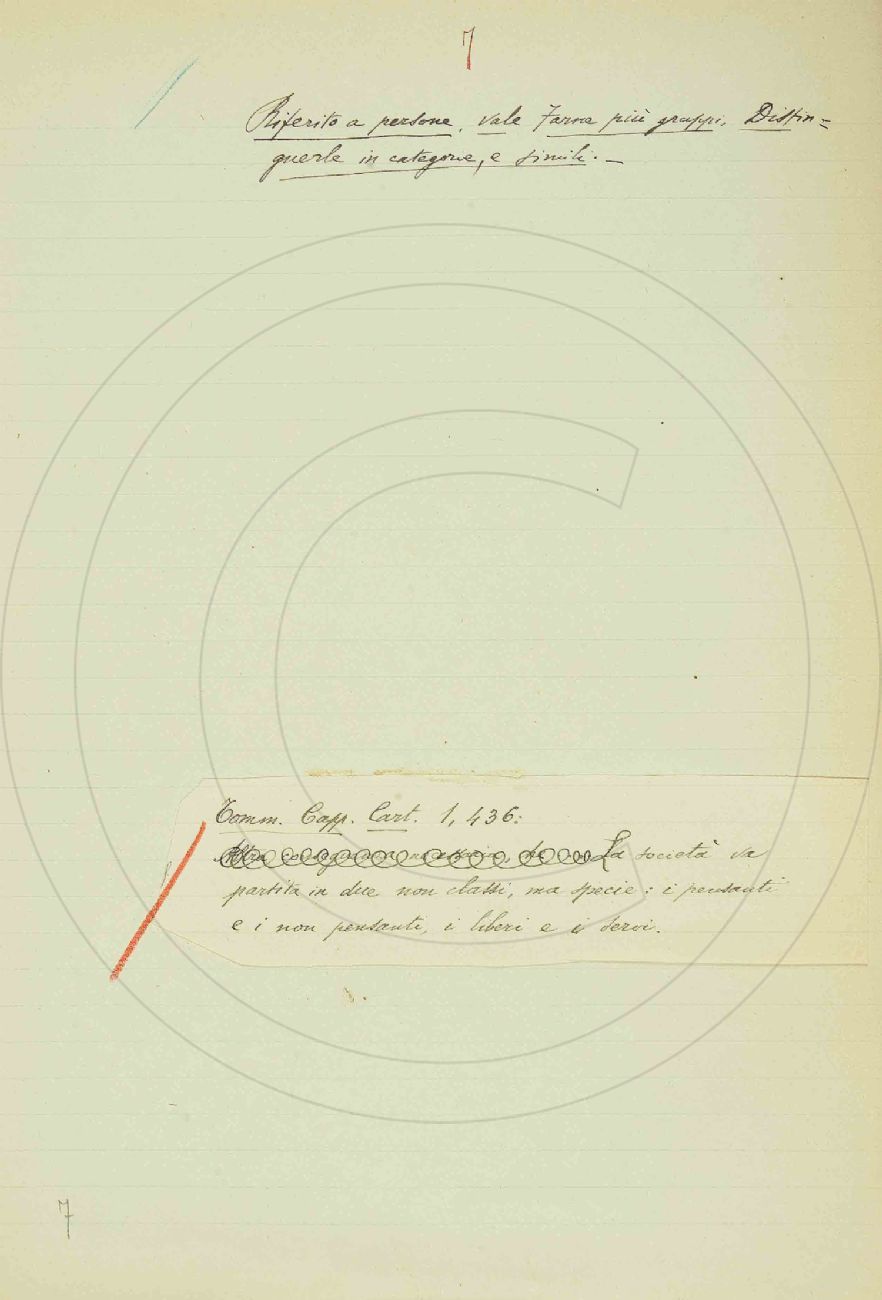 7
Riferito a persone, vale Farne più gruppi, Distin=
guerle in categorie, e simili. —
Tomm. Capp. Cart. 1, 436:
La società va
partita in due non classi, ma specie: i pensanti
e i non pensanti, i liberi e i servi.
7